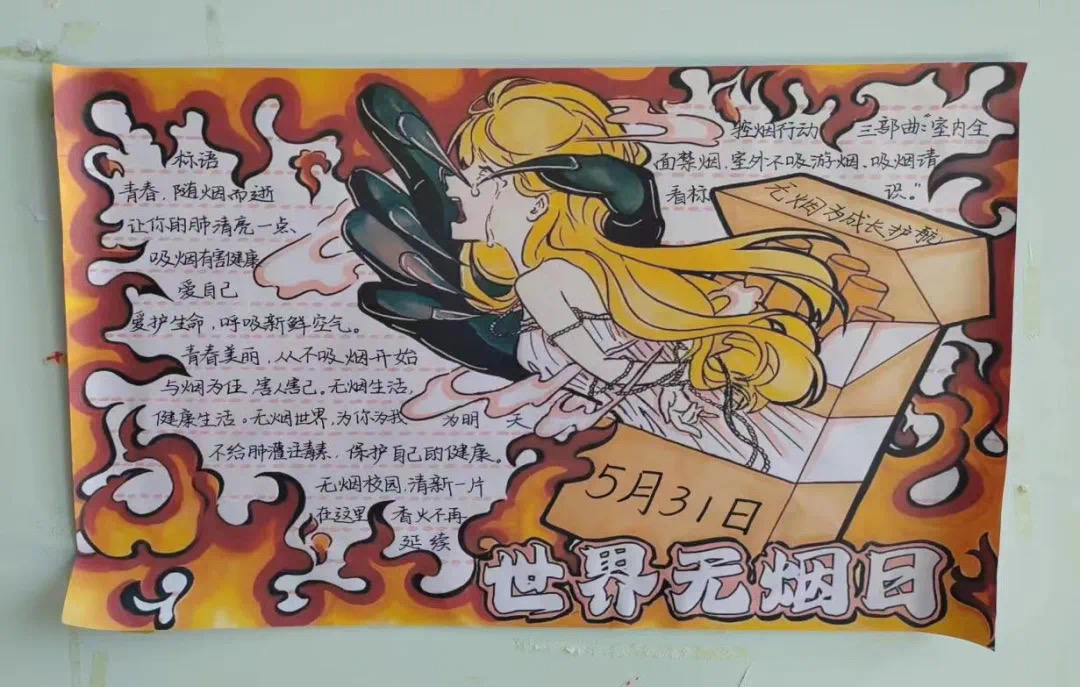 标语
青春，随烟而逝
让你的肺清亮一点、
吸烟有害健康
爱自己
爱护生命，呼吸新鲜空气。
青春美丽，从不吸烟开始
与烟为伍，害人害己。无烟生活，
健康生活。无烟世界，为你为我 为明 天
不给肺灌注毒素，保护自己的健康。
无烟校园，清新一片
在这里 香火不再
延续
控烟行动 三部曲“室内全
面禁烟，室外不吸游烟，吸烟请
看标 识。”
无烟为成长护航
5月31日
世界无烟日